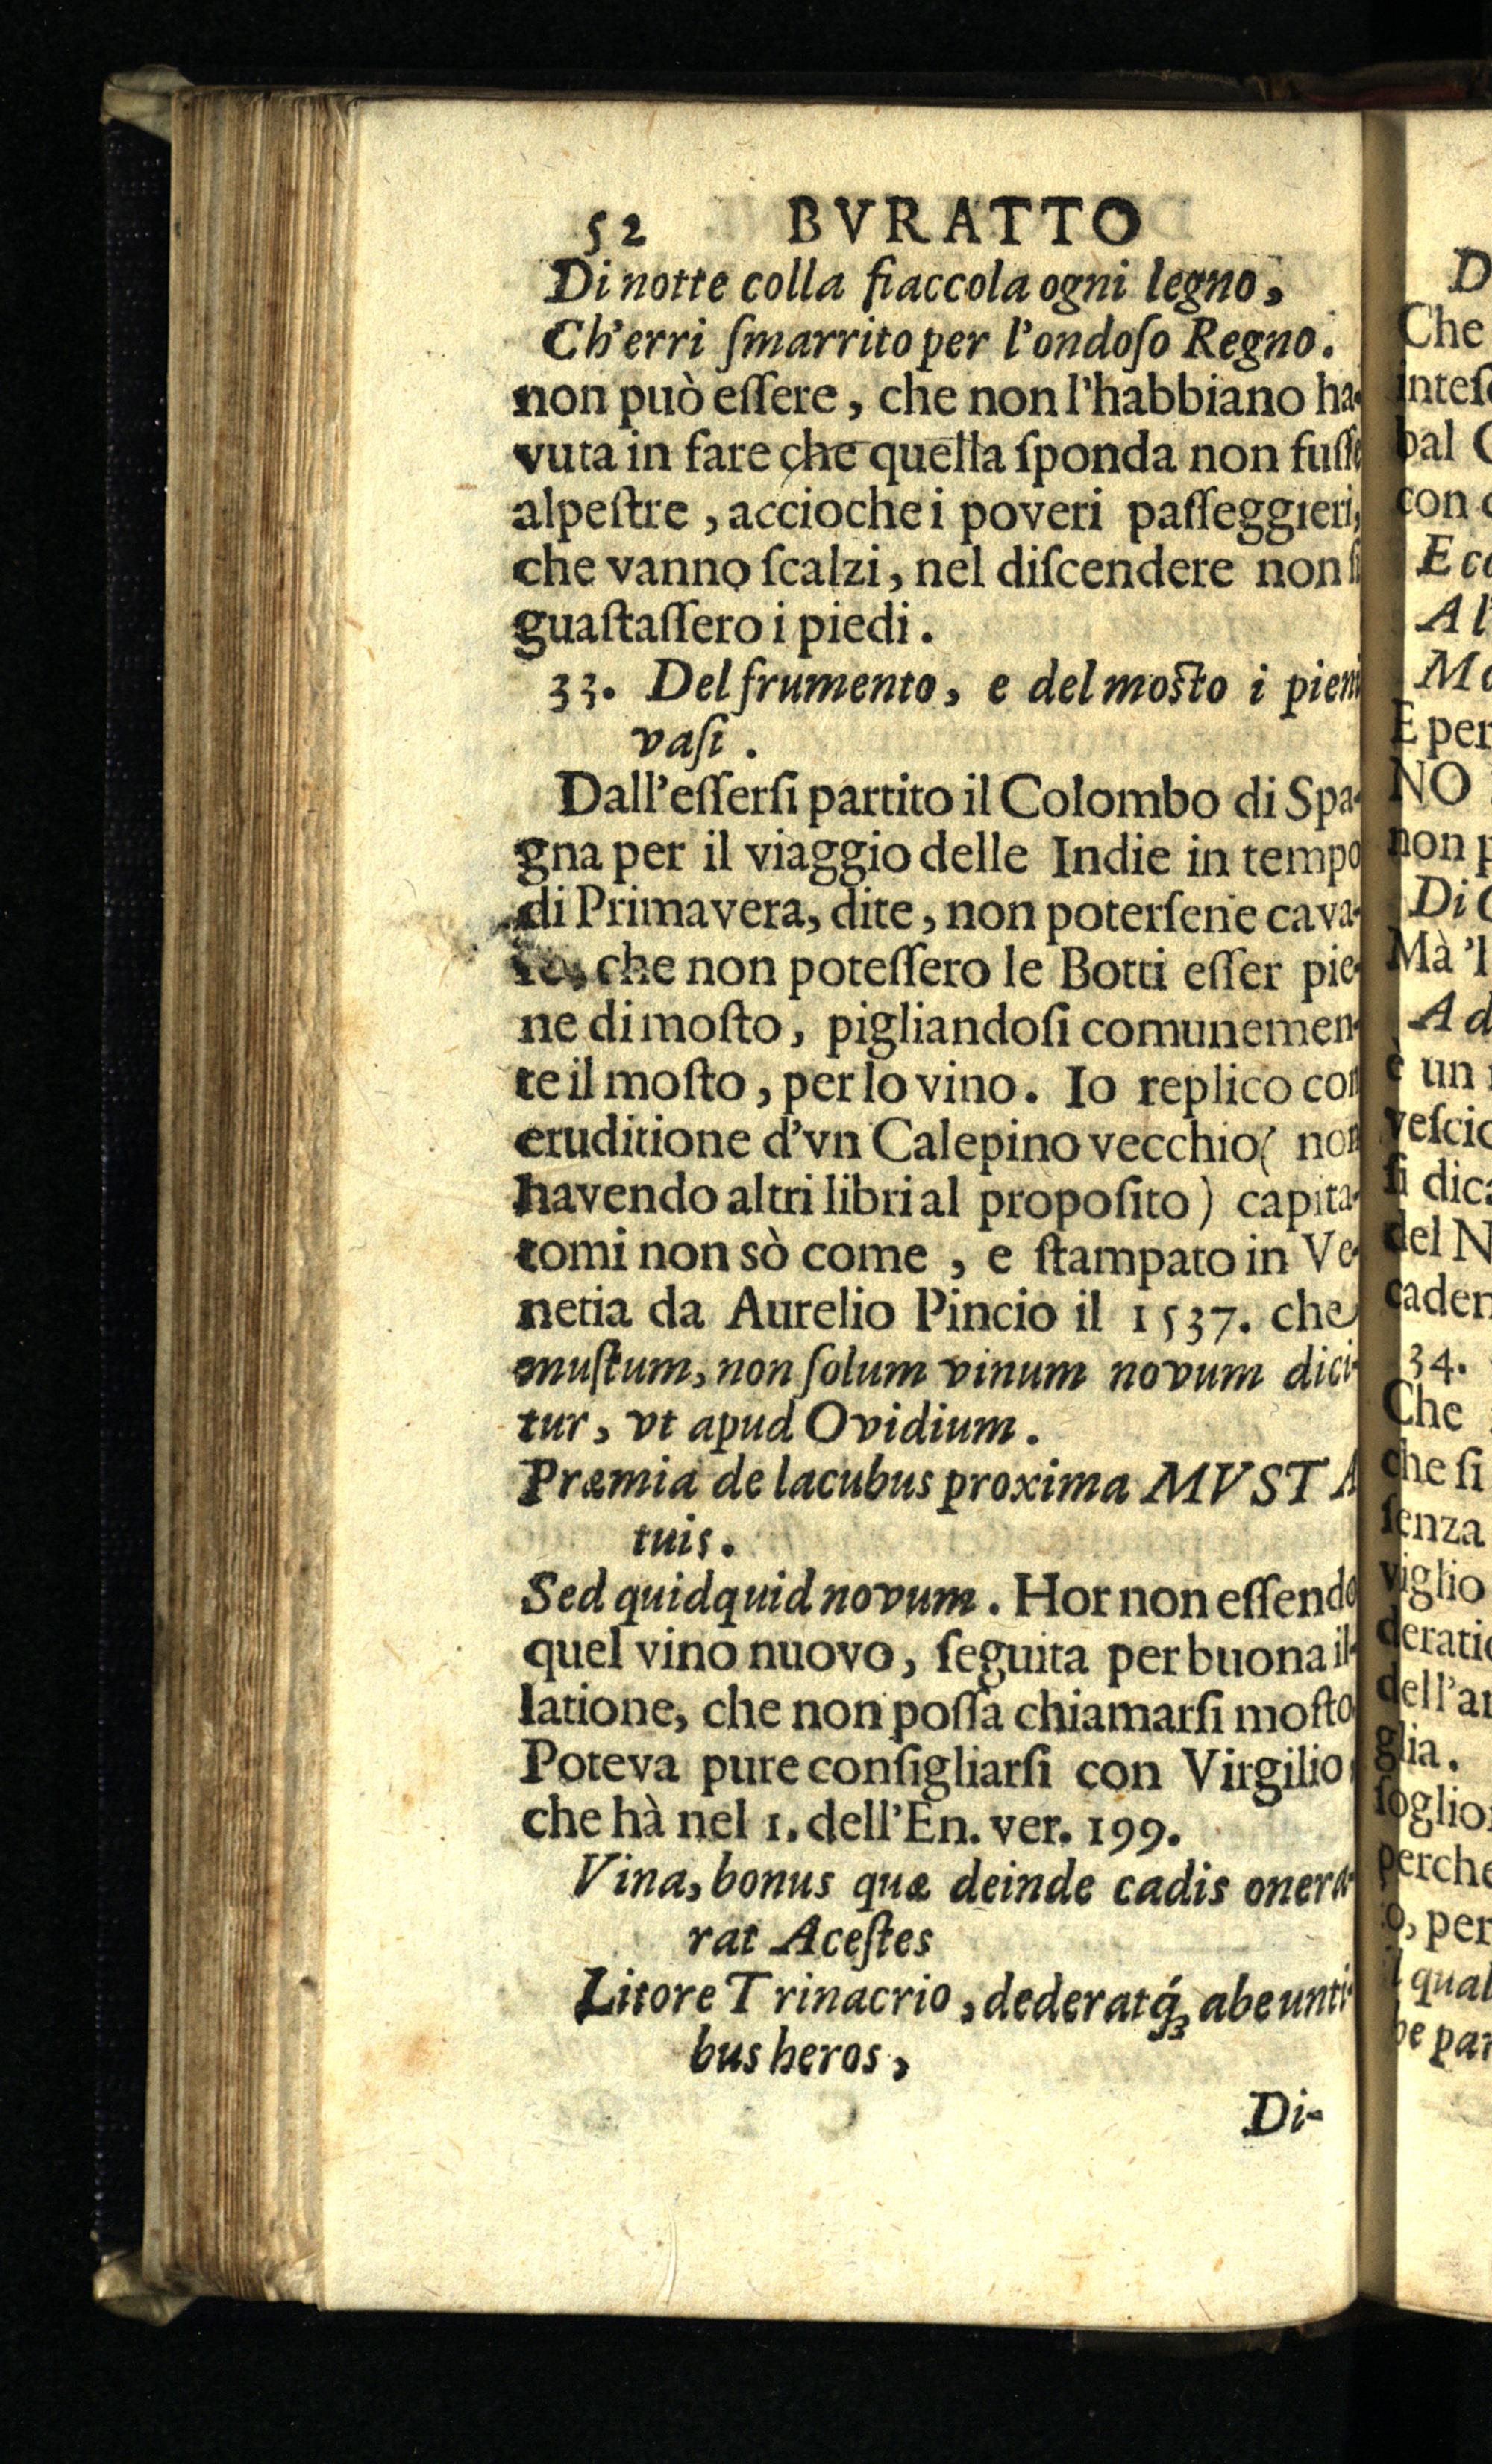 52 BVRATTO
Di notte colla fiaccola ogni legno,
Ch'erri ſmarrito per l'ondoſo Regno.
non può eſſere, che non l'habbiano ha-
vuta in fare che quella ſponda non fuſſe
alpeſtre, accioche i poveri paſſeggieri,
che vanno ſcalzi, nel diſcendere non ſi
guaſtaſſero i piedi.
33. Del frumento, e del moſto i pieni
vaſi.
Dall'eſſerſi partito il Colombo di Spa-
gna per il viaggio delle Indie in tempo
di Primavera, dite, non poterſene cava-
re, che non poteſſero le Botti eſſer pie-
ne di moſto, pigliandoſi comunemen-
te il moſto, per lo vino. Io replico con
eruditione d'vn Calepino vecchio (non
havendo altri libri al propoſito) capita-
tomi non sò come, e ſtampato in Ve-
netia da Aurelio Pincio il 1537. che
muſtum, non ſolum vinum novum dici-
tur, vt apud Ovidium.
Præmia de lacubus proxima MVSTA
tuis.
Sed quidquid novum. Hor non eſſendo
quel vino nuovo, ſeguita per buona il-
latione, che non poſſa chiamarſi moſto
Poteva pure conſigliarſi con Virgilio
che hà nel 1. dell'En. ver. 199.
Vina, bonus quæ deinde cadis onera-
rat Aceſtes
Litore Trinacrio, dederatq́ꝫ abeunti-
bus heros,
Di-
D
Che
bal
con
Al'
E per
NO
non
Mà 'l
è un
del N
34.
Che
che ſi
ſenza
glia.
perche
o, per